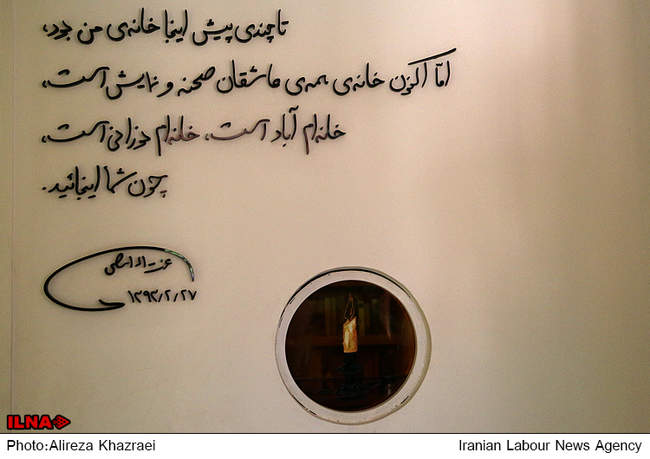 تا چندی پیش اینجا خانه‌ی من بود،
امّا اکنون خانه‌ی همه‌ی عاشقان صحنه و نمایش است،
خانه‌ام آباد است، خانه‌ام نورانی است،
چون شما اینجائید.
عزت‌اله انتظامی
۱۳۹۳/۲/۲۷
ILNA
Photo:Alireza Khazraei
Iranian Labour News Agency